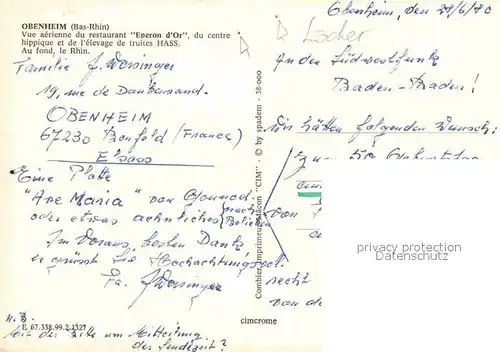 OBENHEIM (Bas-Rhin)
Vue aérienne du restaurant "Eperon d'Or", du centre
hippique et de l'élevage de truites HASS.
Au fond, le Rhin.
Familie
19, rue de
OBENHEIM
67230 Benfeld (France)
Elsass
Eine Platte
"Ave Maria" von Gounod.
oder etwas aehnliches (nach Belieben
Im Voraus, besten Dank
er grüsst Sie Hochachtungsvoll.
Fa.
N.B.
E 67.338.99.2.1327
Mit der Bitte um Mitteilung
der Sendezeit?
Combier Imprimeur Mâcon "CIM" - © by spadem - 38-000
cimcrome
Obenheim, den 29/6/70
An den Südwestfunk
Baden-Baden!
Wir hätten folgenden Wunsch:
zum 50 Geburtstag
von
recht
von de
privacy protection
Persönlichkeitsschutz